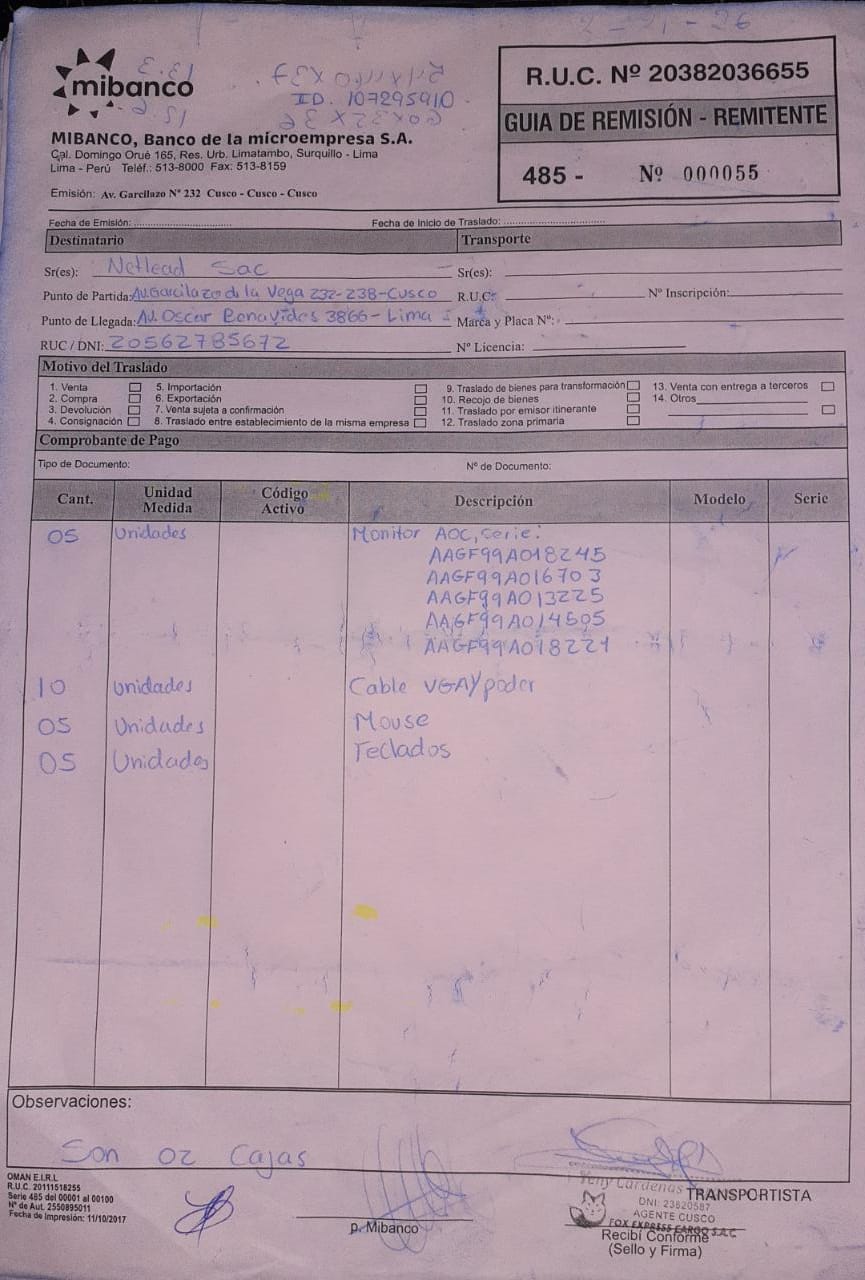 mibanco
ID. 107295910
MIBANCO, Banco de la microempresa S.A.
Cal. Domingo Orué 165, Res. Urb. Limatambo, Surquillo - Lima
Lima - Perú Teléf.: 513-8000 Fax: 513-8159
Emisión: Av. Garcilazo Nº 232 Cusco - Cusco - Cusco
R.U.C. Nº 20382036655
GUIA DE REMISIÓN - REMITENTE
485 - Nº 000055
Fecha de Emisión: Fecha de Inicio de Traslado:
Destinatario Transporte
Sr(es): Netlead Sac Sr(es):
Punto de Partida: Av. Garcilazo de la Vega 232-238-Cusco R.U.C: Nº Inscripción:
Punto de Llegada: Av. Oscar Benavides 3866- Lima Marca y Placa Nº:
RUC / DNI: 20562785672 Nº Licencia:
Motivo del Traslado
1. Venta 5. Importación 9. Traslado de bienes para transformación 13. Venta con entrega a terceros
2. Compra 6. Exportación 10. Recojo de bienes 14. Otros
3. Devolución 7. Venta sujeta a confirmación 11. Traslado por emisor itinerante
4. Consignación 8. Traslado entre establecimiento de la misma empresa 12. Traslado zona primaria
Comprobante de Pago
Tipo de Documento: Nº de Documento:
Cant. Unidad Medida Código Activo Descripción Modelo Serie
05 Unidades Monitor AOC, serie:
AAGF99A018245
AAGF99A016703
AAGF99A013225
AAGF99A014505
AAGF99A018221
10 Unidades Cable VGA y poder
05 Unidades Mouse
05 Unidades Teclados
Observaciones:
Son 02 Cajas
OMAN E.I.R.L
R.U.C. 20111518255
Serie 485 del 00001 al 00100
Nº de Aut. 2550895011
Fecha de Impresión: 11/10/2017
p. Mibanco
Yeny Cardenas
TRANSPORTISTA
DNI: 23820587
AGENTE CUSCO
FOX EXPRESS CARGO S.A.C
Recibí Conforme
(Sello y Firma)